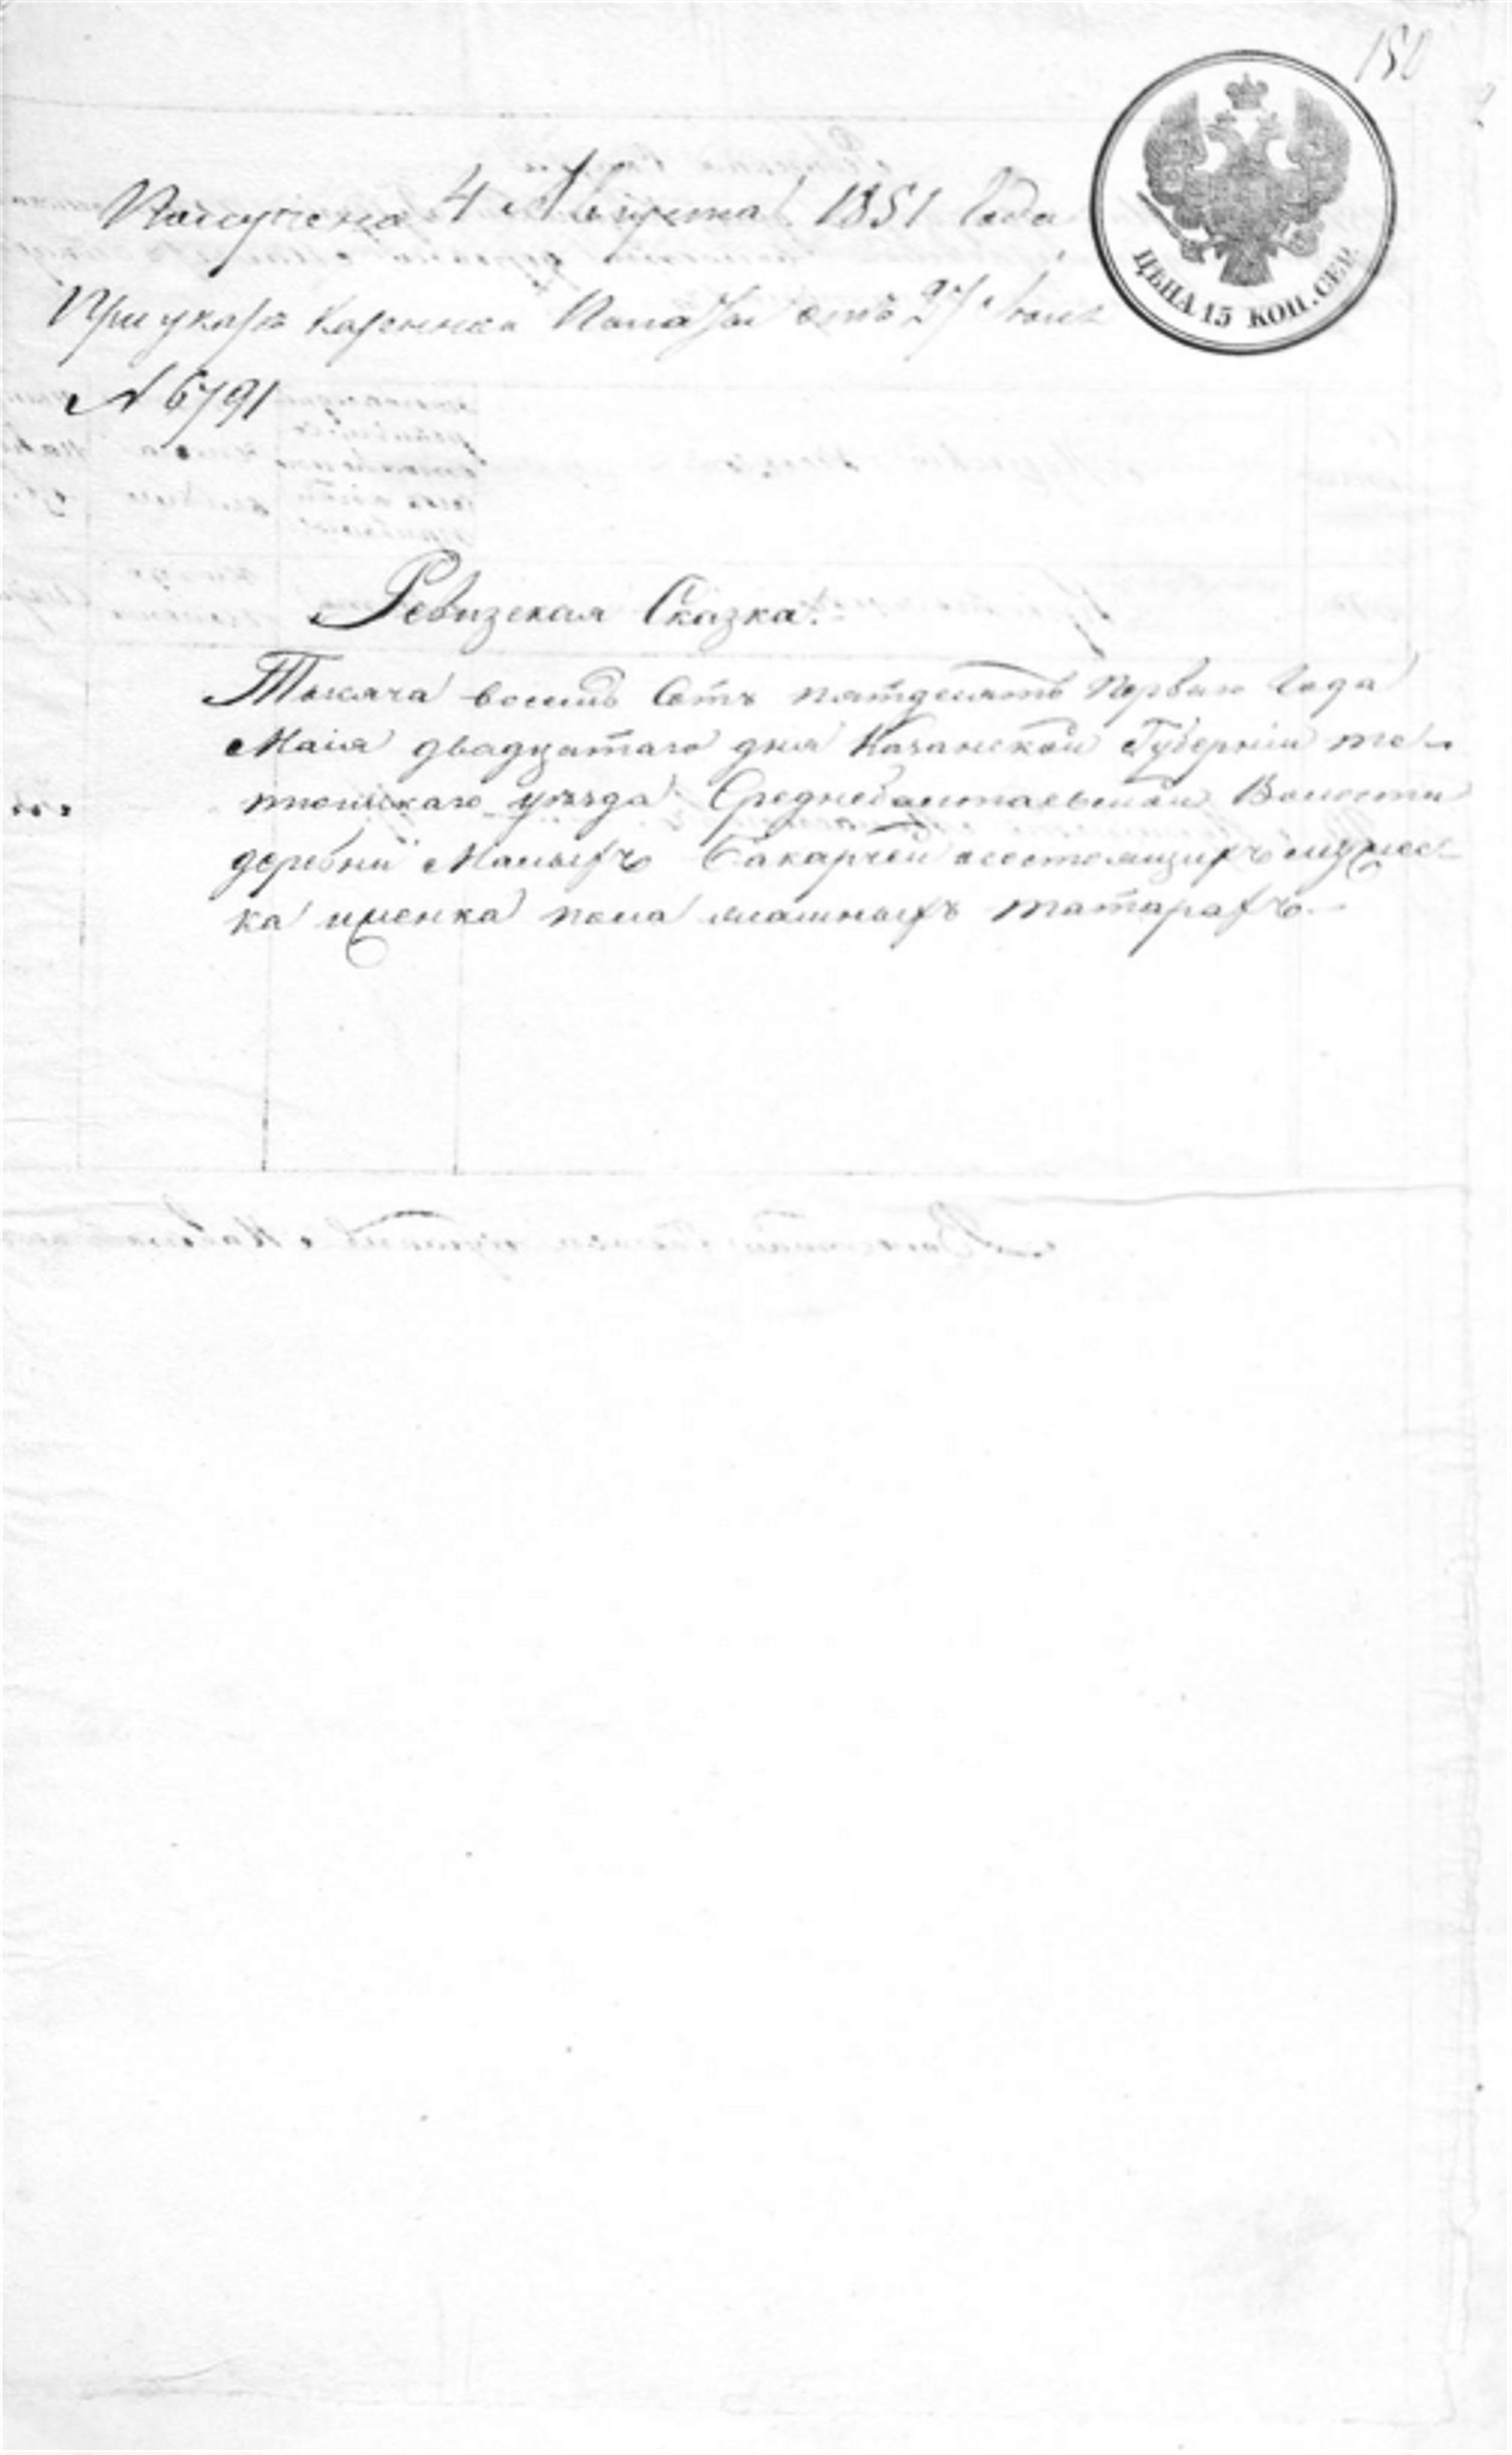 150
Получена 4 Августа 1851 Года
При указе Казенной Палаты отъ 27 Июля
№ 6791
ЦѢНА 15 КОП. СЕР.
Ревизская Сказка.
Тысяча восемь Сотъ пятдесятъ Перваго Года
Маія двадцатаго дня Казанской Губерніи те-
тюшскаго уѣзда Среднебалтаевской Волости
деревни Малыхъ Бакарчей о состоящихъ мужес-
ка и женска пола ясашныхъ татарахъ.